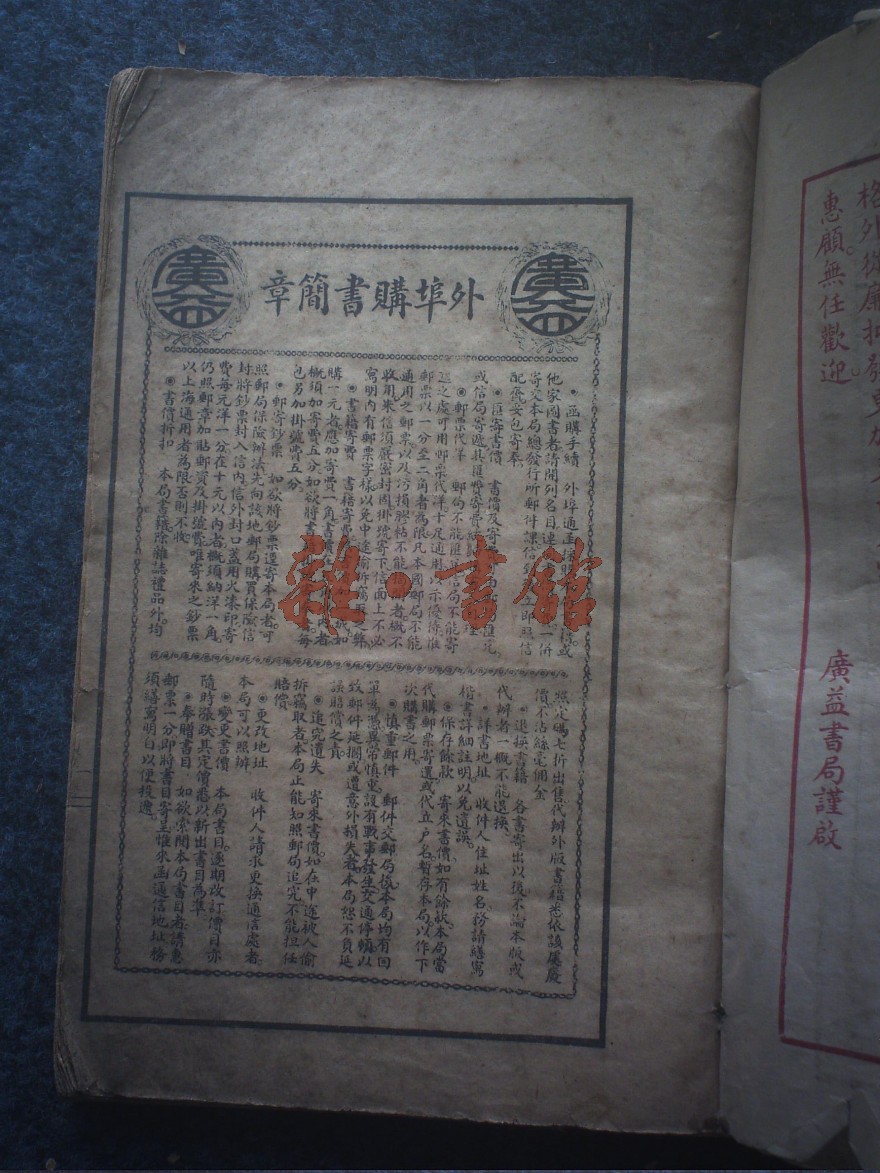 格外從廉批發更加
惠顧。無任歡迎
廣益書局謹啟
廣益
廣益
外埠購書簡章
◉函購手續　外埠通函採購
他家圖書者請開列名目連　一併
寄交本局總發行所郵件課信到　立即照信
配齊妥包寄奉。
◉匯寄書價　書價及寄費
或信局寄遞其匯費寄費
◉郵票代洋　郵局不能匯　信局不能寄
送之處可用郵票代洋十足通用以示優待惟
郵票以一分至二角者為限凡本國郵局不能
通用之郵票以及污損膠粘不能　者概不
收用來信須嚴密封固掛號寄下信面上不必
寫明內有郵票字樣以免中途偷拆竊取
◉書籍寄費　書籍寄費
購一元者應加寄費一角書價在　以內者
概須加寄費五分如欲將書　掛號　每
包另加掛號費五分。
◉郵寄鈔票　如欲將鈔票逕寄本局者。可
照郵局保險辦法先向該地郵局購買保險信
封將鈔票封入信內。信外封口蓋用火漆印寄
費每元洋一分在十元以內者概須納洋一角
仍照郵章加貼郵資及掛號費唯寄來之鈔票
以上海通用者為限否則不收
◉書價折扣　本局書籍除雜誌禮品外。均
照定碼七折出售代辦外版書籍悉依該處廠
價不沾絲毫佣金
◉退換書籍　各書寄出以後不論本版或
代辦者一概不能退換。
◉詳書地址　收件人住址姓名務請繕寫
楷書詳細註明以免遺誤。
◉保存餘款　寄來書價。如有餘款。本局當
代購郵票寄還或代立戶名暫存本局以作下
次購書之用。
◉慎重郵件　郵件交郵局後。本局均有回
單為憑異常慎重。設有戰事發生交通停頓以
致郵件延擱或遭意外損失者。本局恕不負延
誤賠償之責
◉追究遺失　寄來書價。如在中途被人偷
拆竊取者本局止能知照郵局追究不能担任
賠償。
◉更改地址　收件人請求更換通信處者。
本局可以照辦
◉變更書價　本局書目。逐期改訂價目亦
隨時漲跌其定價悉以新出書目為準。
◉奉贈書目　如欲索閱本局書目者。請惠
郵票一分即將書目寄呈惟來函通信地址務
須繕寫明白以便投遞。
雜·書館